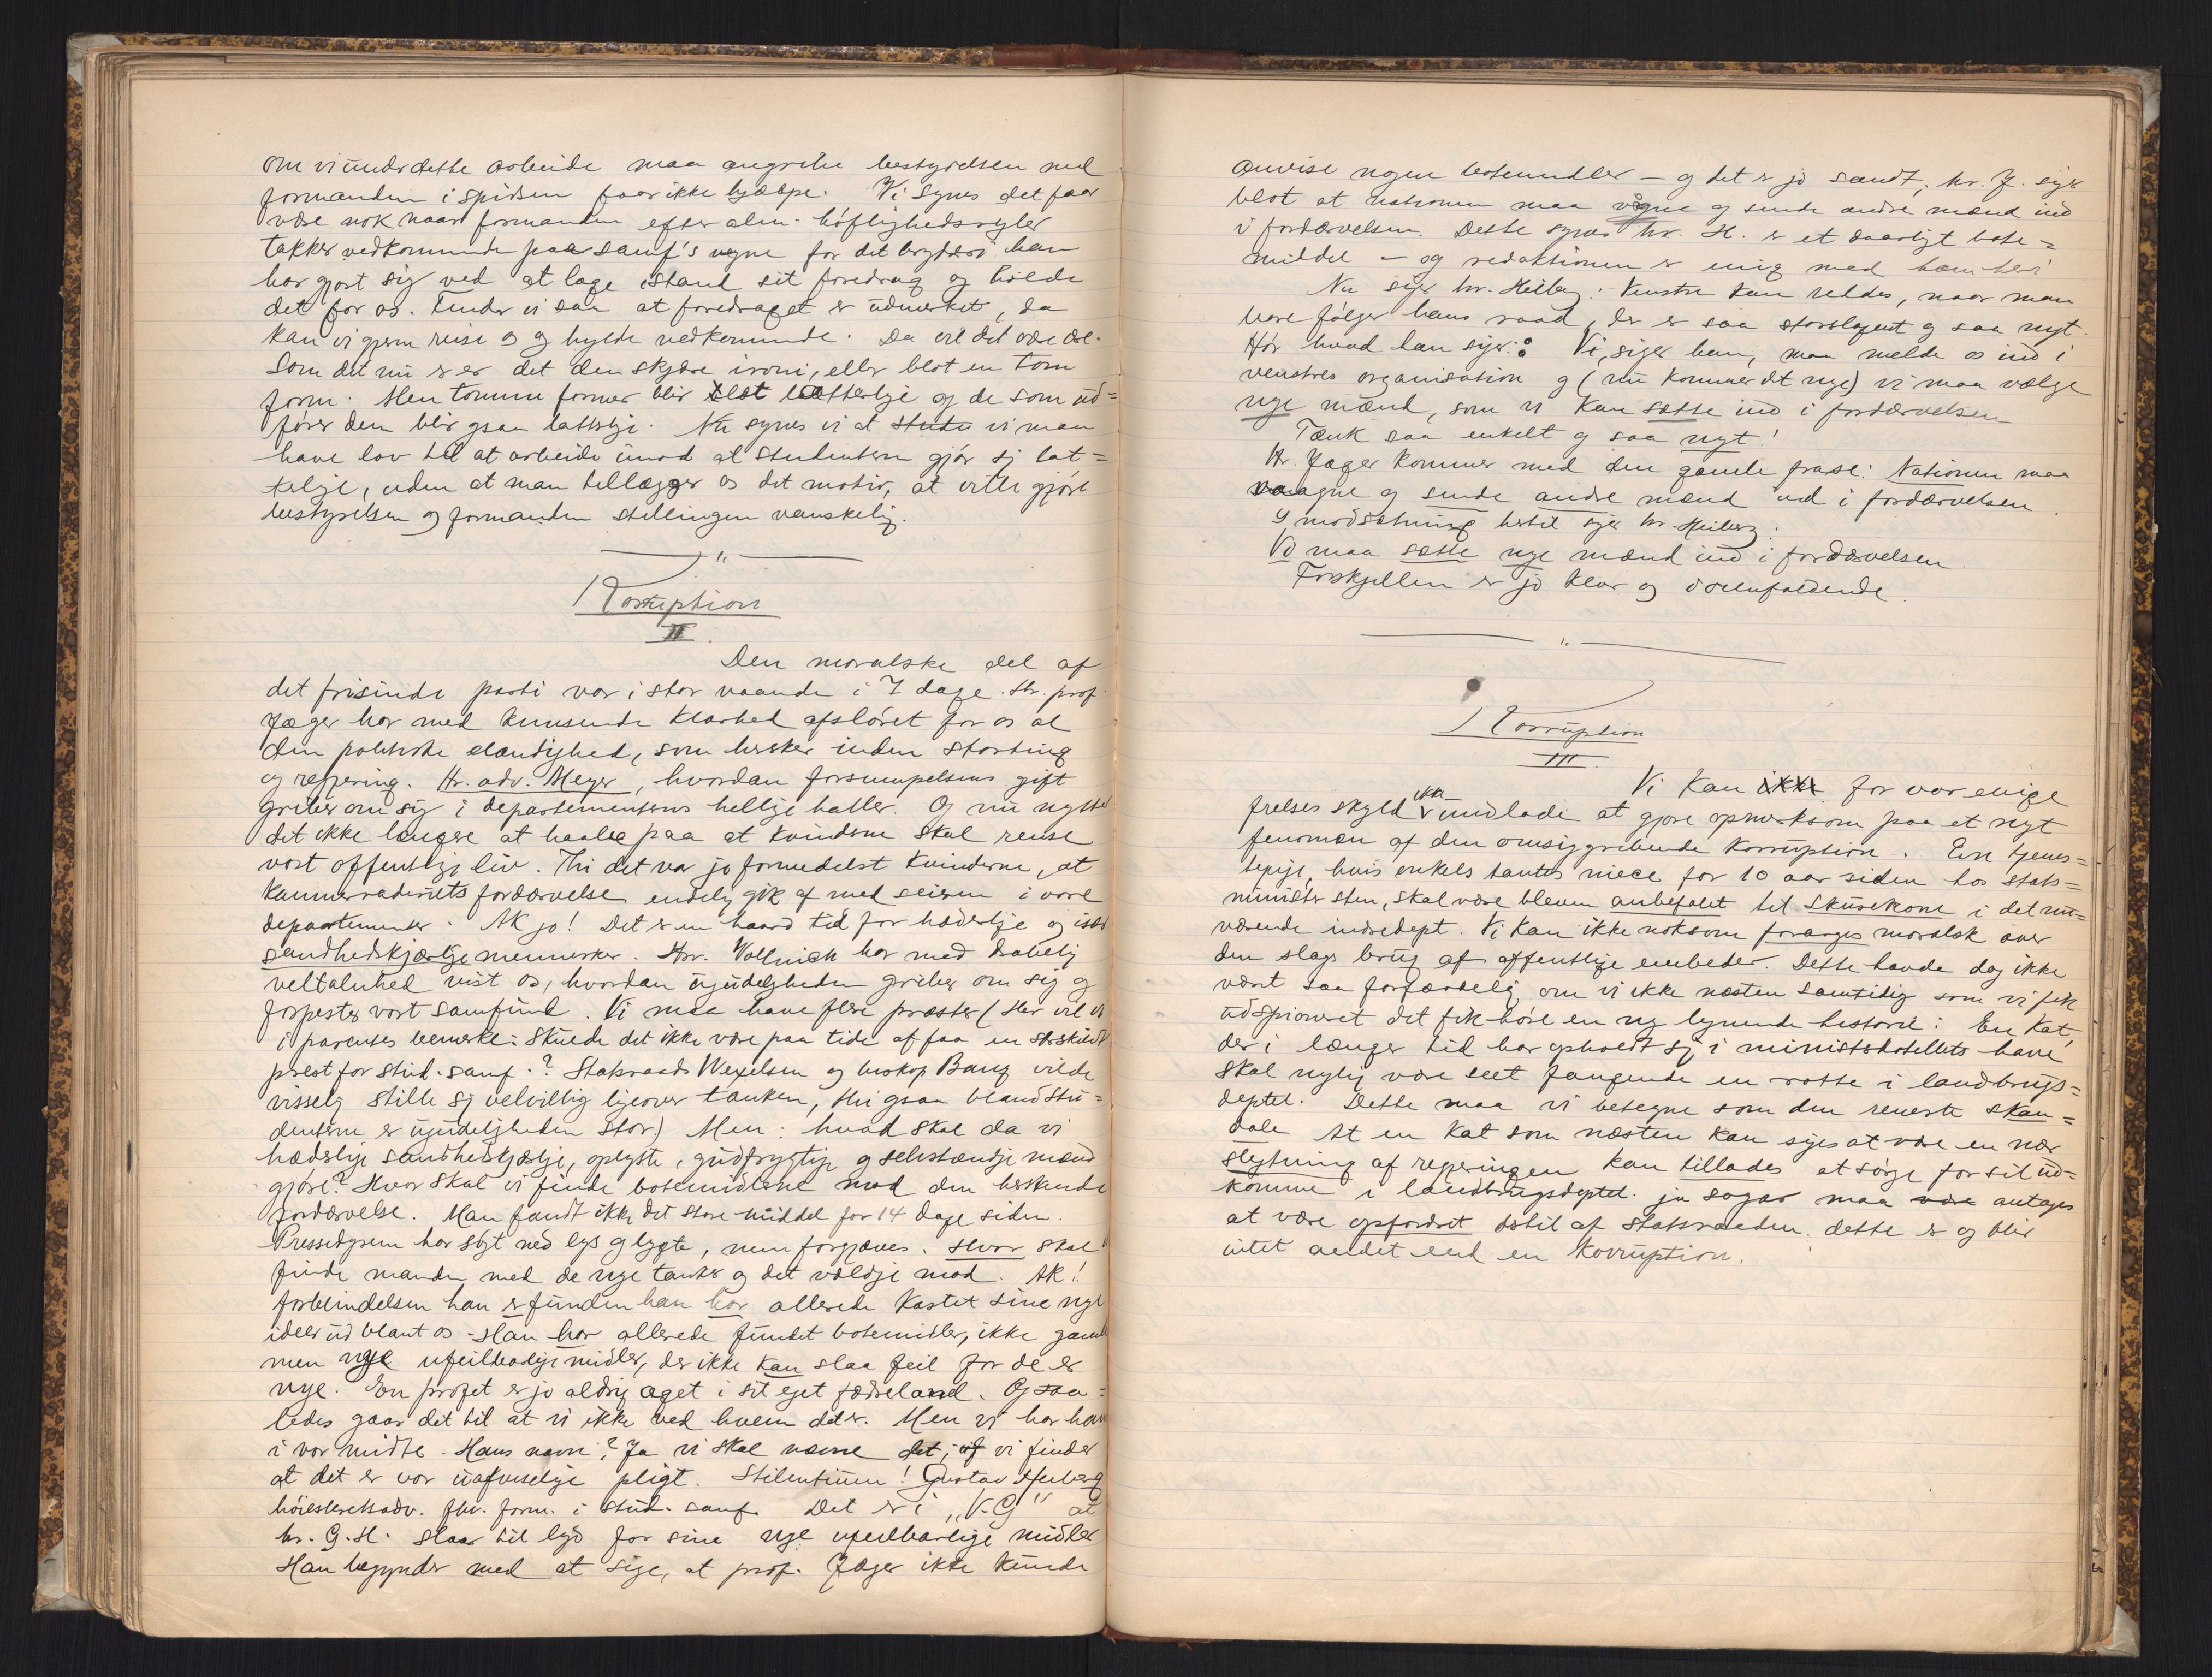 om vi under dette arbeide maa angribe bestyrelsen med
formanden i spidsen faar ikke hjælpe. Vi synes det faar
være nok naar formanden efter alm. høflighedsregler
takker vedkommende paa samf's vegne for det bryderi han
har gjort sig ved at lage istand sit foredrag og holde
det for os. Finder vi saa at foredraget er udmerket, da
kan vi gjerne reise os og hylde vedkommende. Da vil det være det.
Som det nu er er det den skjære ironi, eller blot en tom
form. Men tomme former blir blot latterlige og de som ud=
fører dem blir ogsaa latterlige. Nu synes vi at vi maa
have lov til at arbeide imod at studenterne gjør sig lat=
terlige, uden at man tillægger os det motiv, at ville gjøre
bestyrelsen og formanden stillingen vanskelig.
Korruption
II.
Den moralske del af
det frisinde parti var i stor vaande i 7 dage. Hr. prof.
Jæger har med knusende klarhed afsløret for os al
den politiske elændighed, som hersker inden storting
og regjering. Hr. adv. Meyer, hvordan forsumpelsens gift
griber om sig i departementerns hellige haller. Og nu nytter
det ikke længere at haabe paa at kvinderne skal rense
vort offentlige liv. Thi det var jo formedelst kvinderne, at
kammeraderiets fordærvelse endelig gik af med seiren i vore
departementer. Ak jo! Det er en haard tid for hæderlige og især
sandhedskjærlige mennesker. Hr. Vollnick har med drabelig
veltalenhed vist os, hvordan ugudeligheden griber om sig og
forpester vort samfund. Vi maa have flere præster (Her vil vi
i parentes bemerke: Skulde det ikke være paa tide at faa en særskildt
prest for stud. samf.? Statsraad Wexelsen og biskop Bang vilde
visselig stille sig velvillig ligeover tanken, thi ogsaa bland stu=
denterne er ugudeligheden stor.) Men: hvad skal da vi
hæderlige sandhedskjærlige, oplyste, gudfrygtige og selvstændige mænd
gjøre? Hvor skal vi finde botemidlerne mod den herskende
fordærvelse. Man fandt ikke det store middel for 14 dage siden.
Pressedyrene har søgt med lys og lygte, men forgjæves. Hvor skal
finde manden med de nye tanker og det vældige mod. Ak!
forblindelsen han er funden han har allerede kastet sine nye
ideer ud blant os. Han har allerede fundet botemidler, ikke gamle
men nye ufeilbarlige midler, der ikke kan slaa feil for de er
nye. En profet er jo aldrig aget i sit eget fædreland. Og saa=
ledes gaar det til at vi ikke ved hvem det er. Men vi har ham
i vor midte. Hans navn? Ja vi skal nævne det; vi finder
at det er vor uafviselige pligt. Stilentium! Gustav Heiberg
høiesteretsadv. fhv. form. i stud. samf. Det er i „V.G" at
hr. G. H. slaar til lyd for sine nye ufeilbarlige midler
Han begynder med at sige, at prof. Jæger ikke kunde
anvise nogen botemidler – og det er jo sandt; hr. J. siger
blot at nationen maa vogne og sende andre mænd ind
i fordærvelsen. Dette synes hr. H. er et daarligt bote=
middel – og redaktionen er enig med ham heri
Nu siger hr. Heiberg: Venstre kan reddes, naar man
bare følger hans raad, der er saa storslagent og saa nyt.
Hør hvad han siger: Vi, siger han, maa melde os ind i
venstres organisation og (nu kommer det nye) vi maa vælge
nye mænd, som vi kan sætte ind i fordærvelsen
Tænk saa enkelt og saa nyt!
Hr. Jæger kommer med den gamle frase: Nationen maa
vaagne og sende andre mænd ind i fordærvelsen.
I modsætning hertil siger hr. Heiberg:
Vi maa sætte nye mænd ind i fordærvelsen.
Forskjellen er jo klar og iøienfaldende.
Korruption
III.
Vi kan ikke for vor evige
frelses skyld ikke undlade at gjøre opmerksom paa et nyt
fenomæn af den omsiggribende korruption. En tjenes=
tepige, hvis onkels tantes niece for 10 aar siden hos stats=
minister Steen, skal være bleven anbefalet til skurekone i det nu=
værende indredept. Vi kan ikke noksom forarges moralsk over
den slags brug af offentlige embeder. Dette havde dog ikke
været saa forfærdelig om vi ikke næsten samtidig som vi fik
udspioneret det fik høre en ny lignende historie: En kat,
der i længer tid har opholdt sig i ministerhotellets have
skal nylig være seet fangende en rotte i landbrugs=
deptet. Dette maa vi betegne som den reneste skan=
dale At en kat som næsten kan siges at være en nær
slegtning af regjeringen kan tillades at sørge for sit ud=
komme i landbrugsdeptet. ja sogar maa antages
at være opfordret dertil af statsraaden. dette er og blir
intet andet end en korruption.